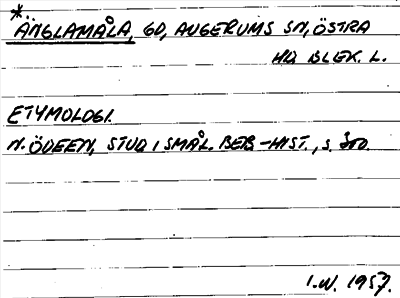 *
ÄNGLAMÅLA, GD, AUGERUMS SN, ÖSTRA
HD BLEK. L.
ETYMOLOGI.
N. ÖDEEN, STUD I SMÅL. BEB-HIST., S.
I.W. 1957.